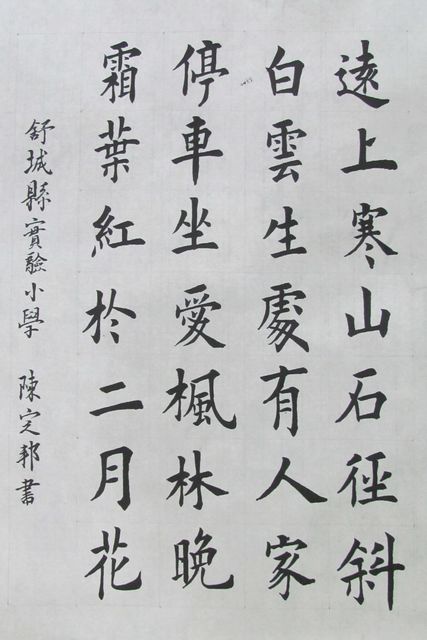 遠上寒山石徑斜
白雲生處有人家
停車坐愛楓林晚
霜葉紅於二月花
舒城縣實驗小學 陳定邦書